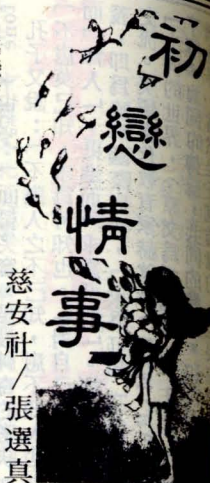 初戀情事
慈安社/張選真